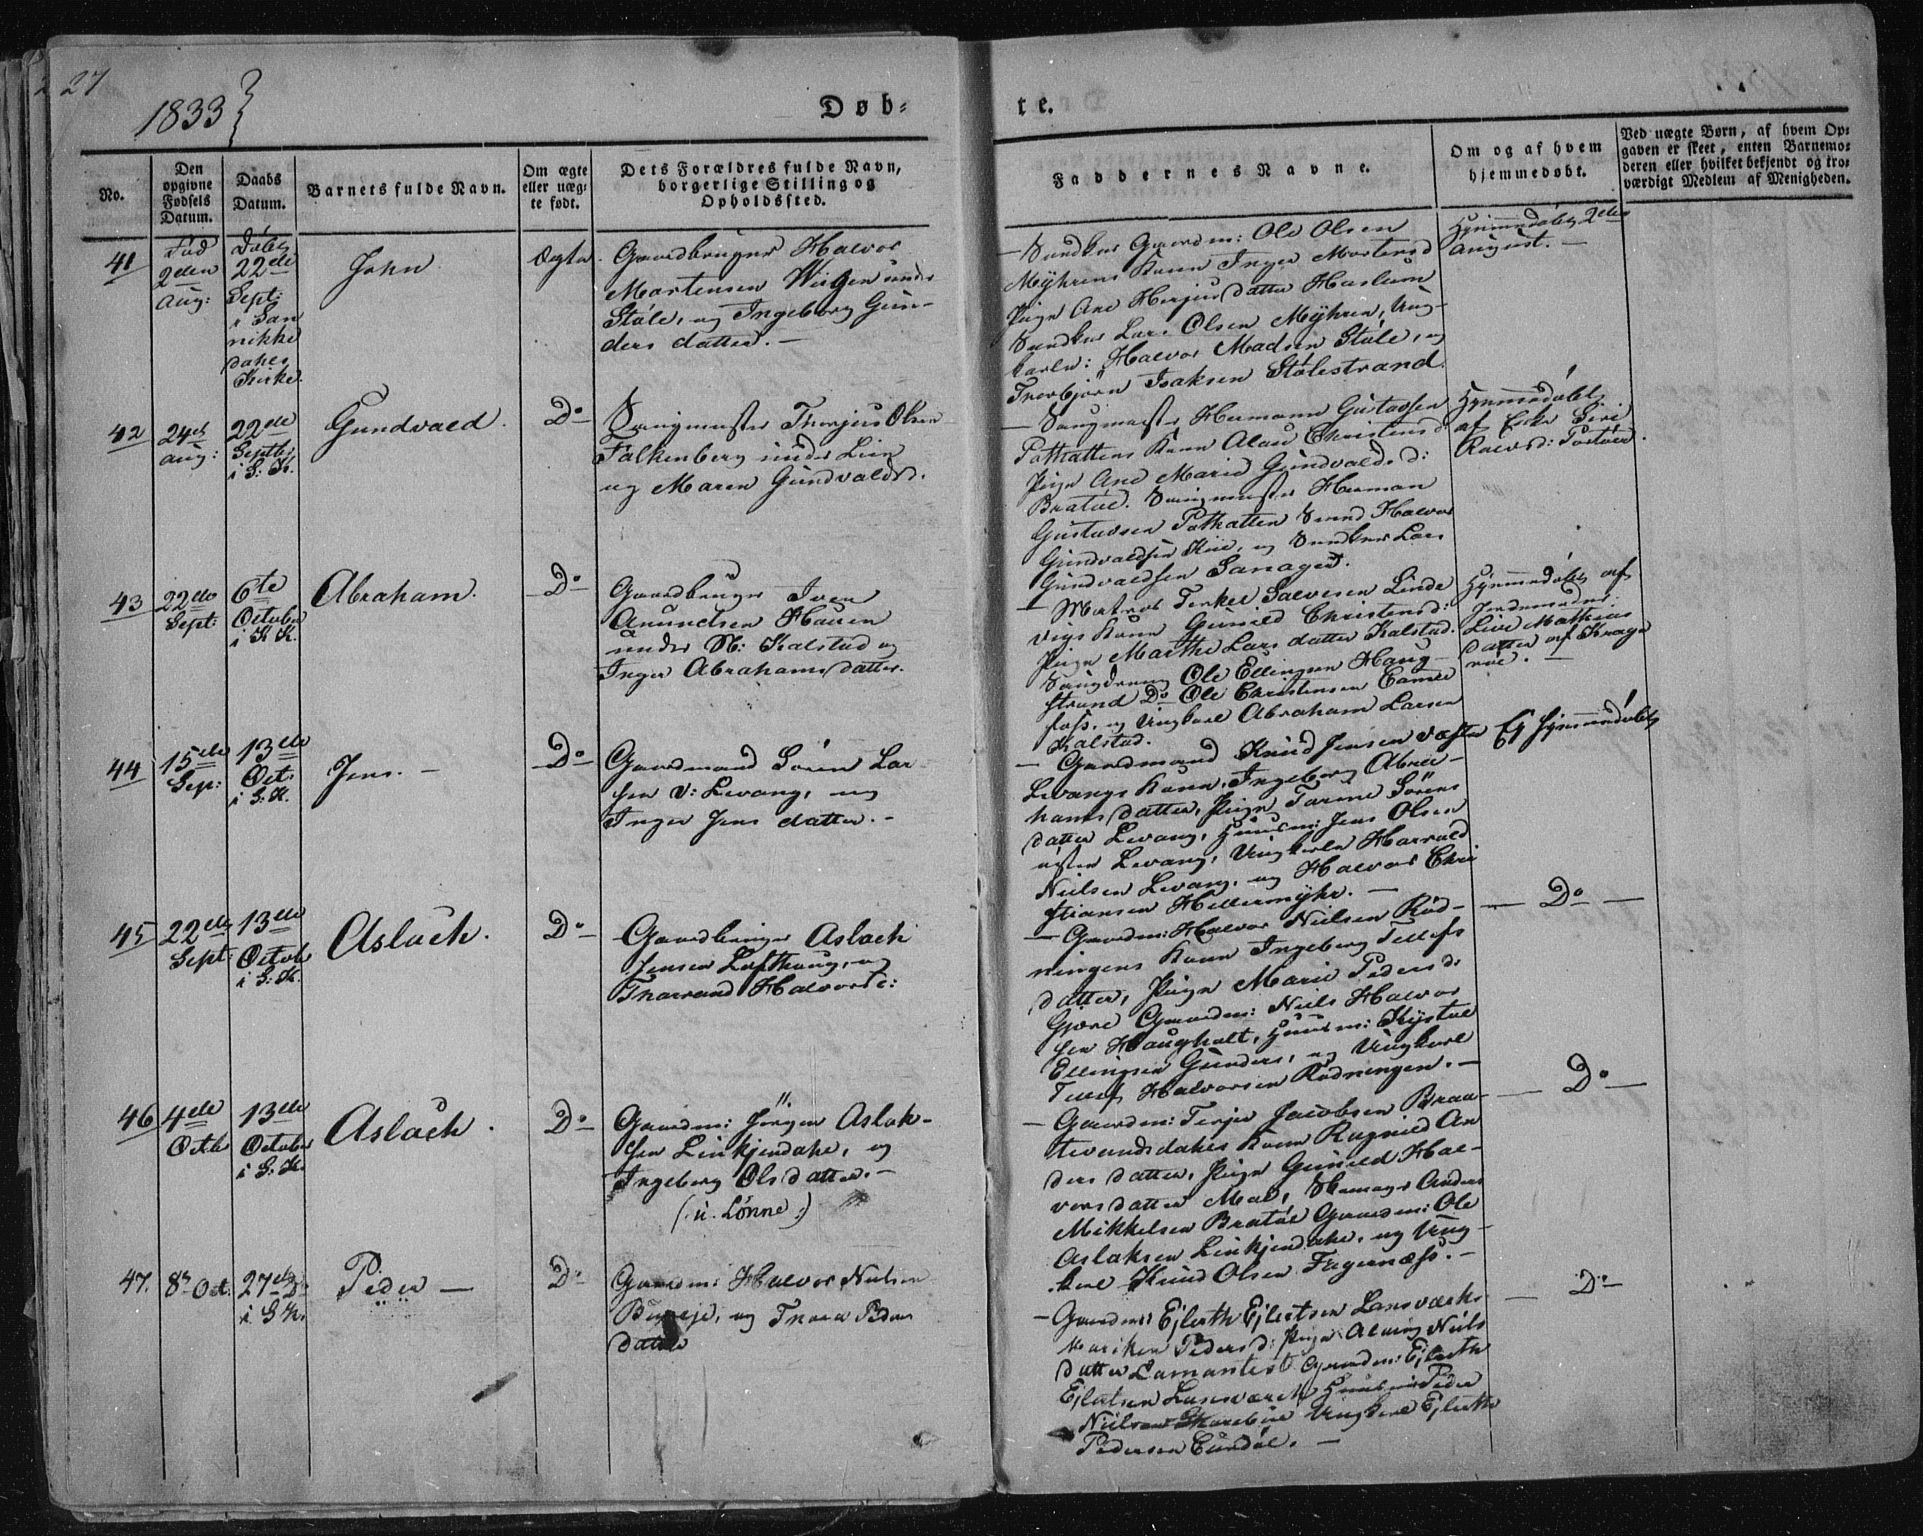 27
1833
Døb-
te.
No.
Den opgivne Fødsels Datum.
Daabs Datum.
Barnets fulde Navn.
Om ægte eller uæg- te født.
Dets Forældres fulde Navn, borgerlige Stilling og Opholdssted.
Faddernes Navne.
Om og af hvem hjemmedøbt.
Ved uægte Børn, af hvem Op- gaven er skeet, enten Barnemo- deren eller hvilket bekjendt og tro- værdigt Medlem af Menigheden.
41
Fød
2den
Aug:
Døbt
22de
Sept:
i San
nikke
dahls
Kirke.
John
Ægte.
Gaardbruger Halvor
Mortensen Wiigen under
Støle, og Ingeborg Gun-
ders datter. —
Ole Olsen
Myhrens Kone Inger Mortensd
Pige Ane Herjus datter Haslum
Lars Olsen Myhren, Ung-
karle: Halvor Madsen Støle, og
Thorbjørn Isaksen Stølestrand.
Hjemmedøbt 2den
August. —
42
24de
Aug:
22de
Septb:
i S: K.
Gundvald.
Do
Thorjus Olsen
Falkenberg under Lien
og Maren Gundvaldsd.
Hermann Gustavsen
Pothattens Kone Christensd:
Pige Ane Marie Gundvalds d:
Bratøe. Herman
Gustavsen Pothatten Halvor
Gundvaldsen og Lars
Gundvaldsen
Hjemmedøbt
af Enke Siri
43
22de
Sept:
6te
October
i K K.
Abraham.
Do
Gaardbruger Iver
Amundsen Hauen
under N: Kalstad og
Inger Abrahams datter.
— Matros Terkel Salvesen Linde
vigs Kone Gunild Christensd:
Pige Marthe Lars datter Kalstad.
Ole Ellingsen Haug-
strand Do Ole Christensen
foss, og Ungkarl Abraham Larsen
Kalstad.
Hjemmedøbt af
Jordemoder
Live Mathias
datter af Krage
røe. —
44
15de
Sep:
13de
Oct:
i S: K.
Jens. —
Do
Gaardmand Søren Lar-
sen v: Levang, og
Inger Jens datter. -
— Gaardmand Knud Jensen vestre
Levangs Kone, Ingeborg Abra-
hams datter, Pige Sørens
datter Levang, Huusm: Jens Olsen
østre Levang, Ungkarle Harrald
Nielsen Levang, og Halvor Chri
stiansen Hellermyhr. —
Ej hjemmedøbt
45
22de
Sept:
13de
Octob
i S: K.
Aslach.
Do
Gaardbruger Aslach
Jensen Lofthaug, og
Halvorsd:
— Gaardm: Halvor Nielsen Rød-
ningens Kone Ingeborg Tellefs
datter, Pige Marie Peders d:
Gaardm: Niels Halvor
sen Haugholt, Huusm: Kjøstol
Ellingsen Gunders, og Ungkarl
Tellef Halvorsen Rødningen. —
— Do —
46
4de
Octb
13de
October
i S: K.
Aslach.
Do
Gaardm: Jörgen Aslak-
sen Linkjendahl, og
Ingeborg Olsdatter. —
(: u. Lønne :)
— Gaardm: Terje Jacobsen Braa-
tvandsdahls Kone Ragnild An
ders datter, Pige Gunild Hal-
vors datter Anders
Mikkelsen Bratøe Gaardm: Ole
Aslaksen Linkjendahl, og Ung-
karl Knud Olsen Fagernæss. —
— Do —
47.
8de Oct.
27de Do
i S K.
Peder —
Do
Gaardm: Halvor Nielsen
og Thora Peders
datter
— Gaardm: Ejlerth Ejlertsen
Mariken Pedersd: Pige Niels
datter Gaardm: Ejlerth
Ejlertsen Huusm: Peder
Nielsen Ungkarl Ejlerth
Pedersen —
— Do —